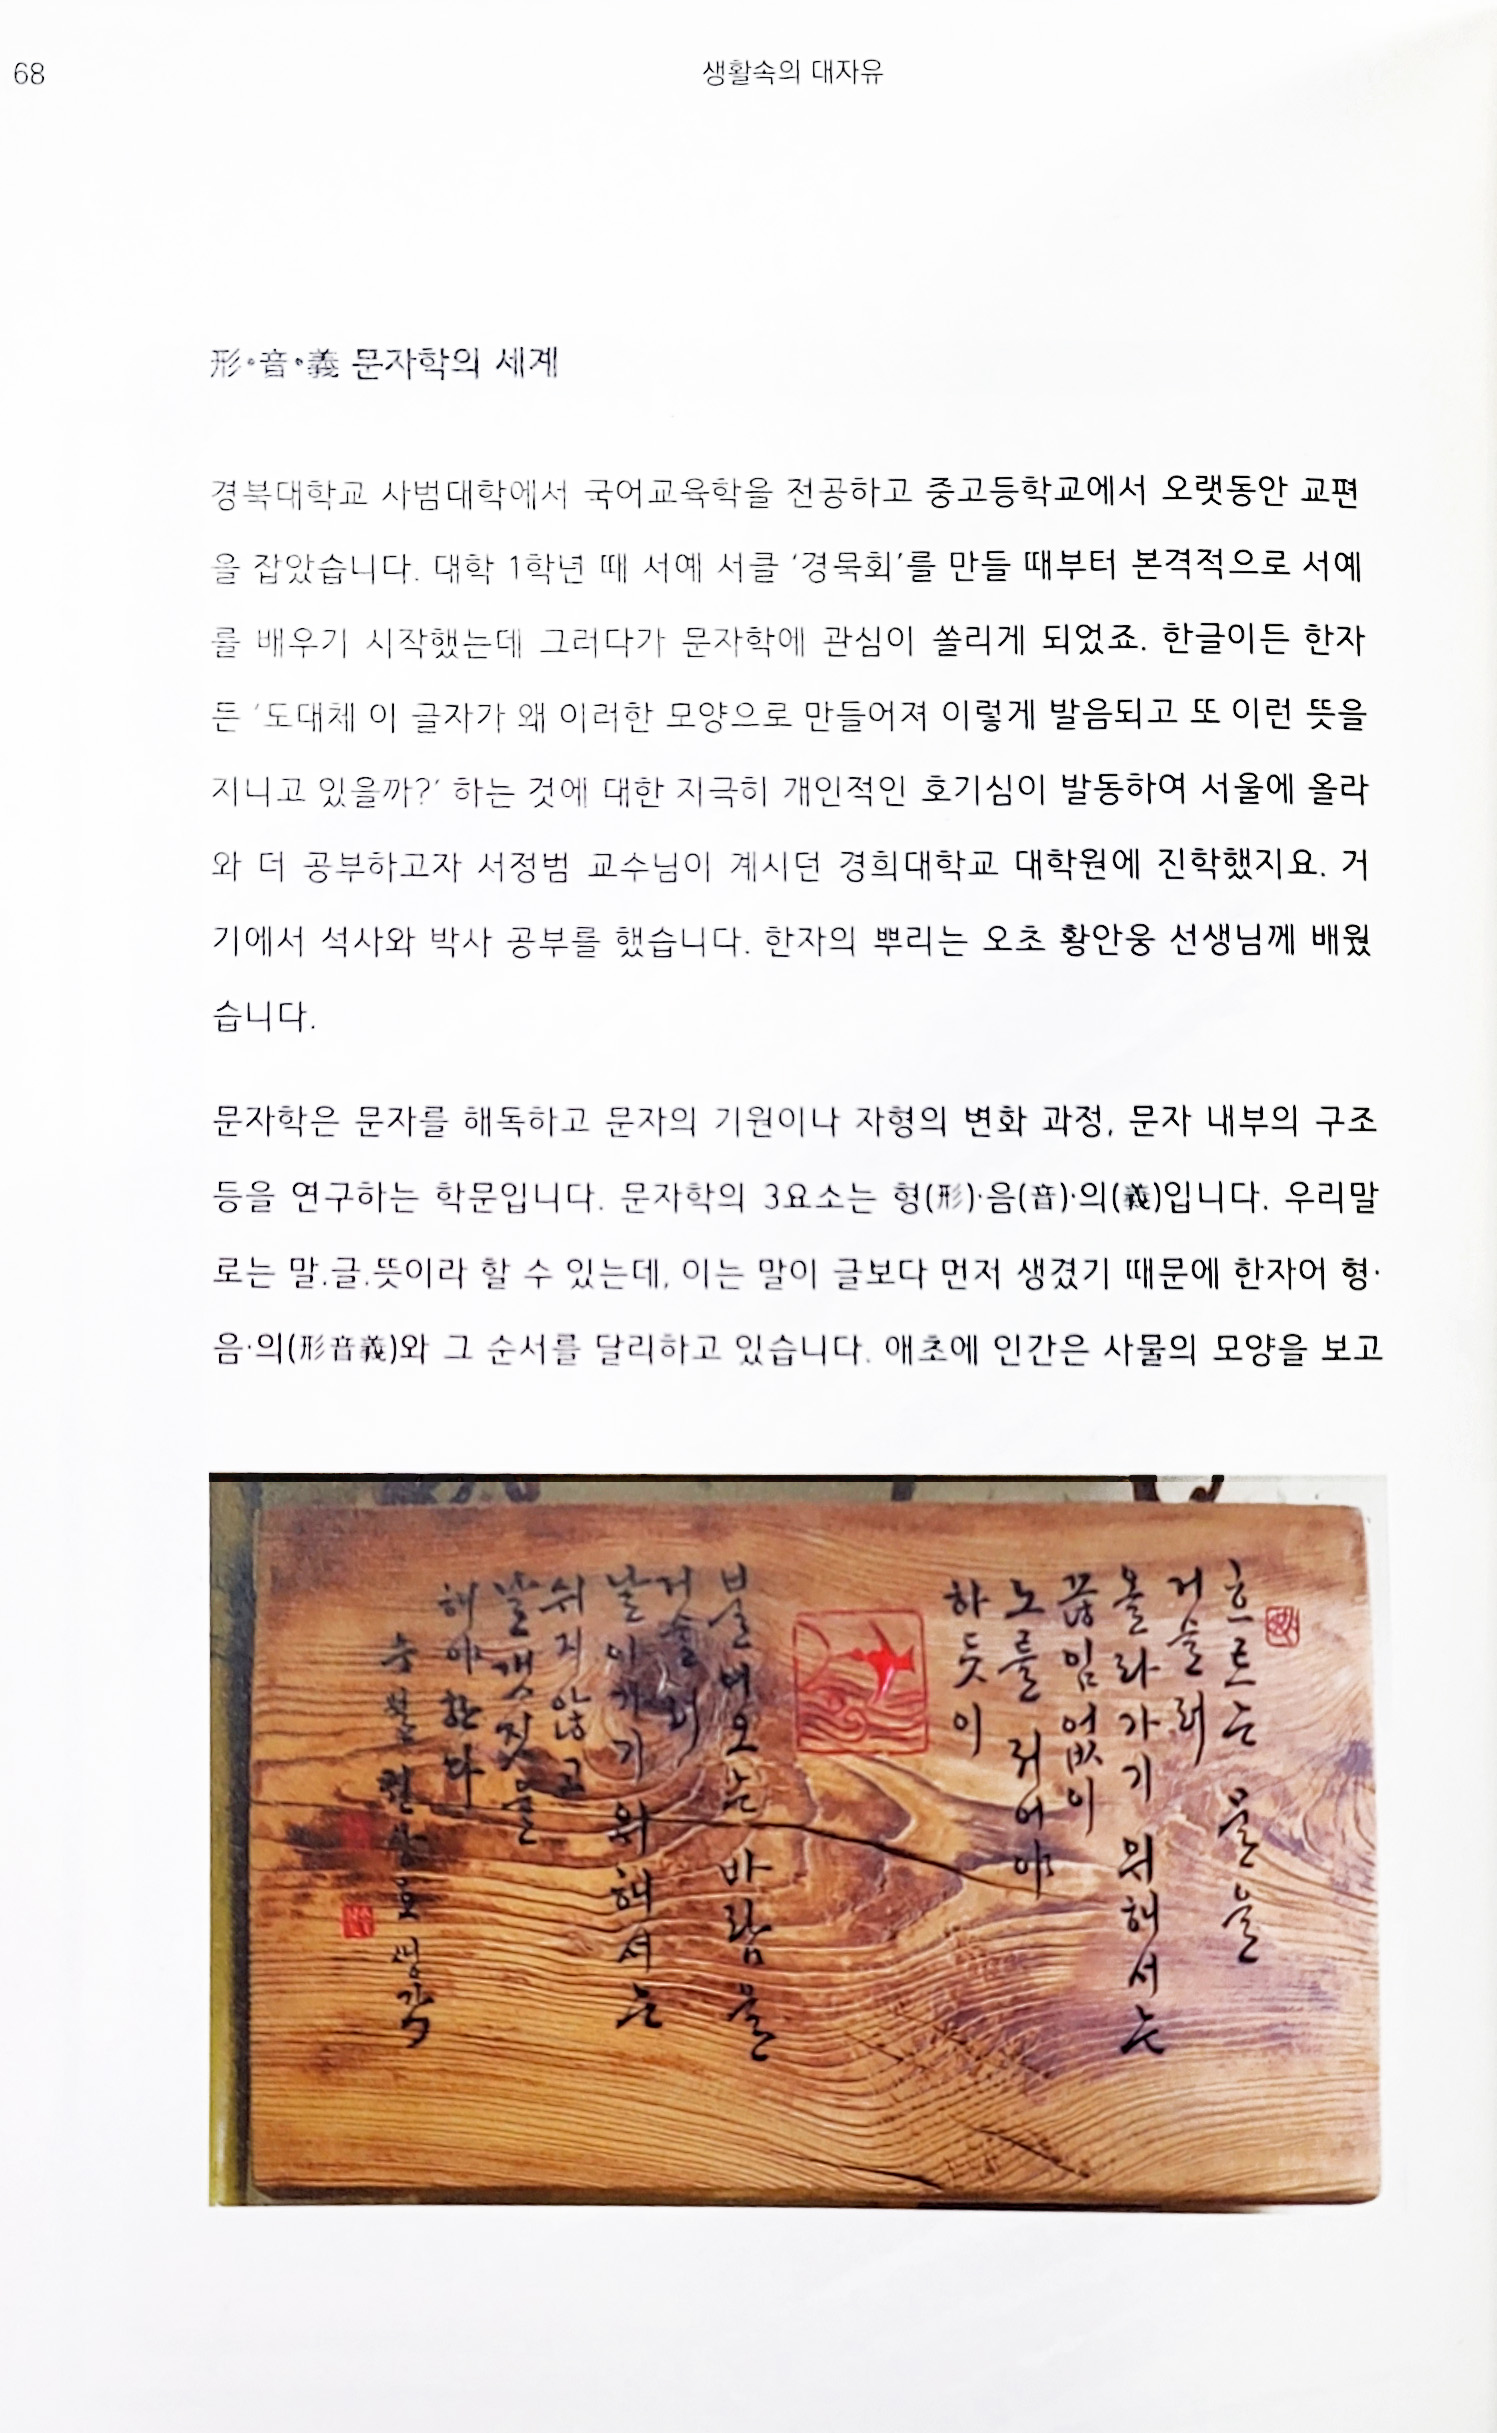 68
생활속의 대자유
形·音·義 문자학의 세계
경북대학교 사범대학에서 국어교육학을 전공하고 중고등학교에서 오랫동안 교편
을 잡았습니다. 대학 1학년 때 서예 서클 ‘경묵회’를 만들 때부터 본격적으로 서예
를 배우기 시작했는데 그러다가 문자학에 관심이 쏠리게 되었죠. 한글이든 한자
든 ‘도대체 이 글자가 왜 이러한 모양으로 만들어져 이렇게 발음되고 또 이런 뜻을
지니고 있을까?’ 하는 것에 대한 지극히 개인적인 호기심이 발동하여 서울에 올라
와 더 공부하고자 서정범 교수님이 계시던 경희대학교 대학원에 진학했지요. 거
기에서 석사와 박사 공부를 했습니다. 한자의 뿌리는 오초 황안웅 선생님께 배웠
습니다.
문자학은 문자를 해독하고 문자의 기원이나 자형의 변화 과정, 문자 내부의 구조
등을 연구하는 학문입니다. 문자학의 3요소는 형(形)·음(音)·의(義)입니다. 우리말
로는 말.글.뜻이라 할 수 있는데, 이는 말이 글보다 먼저 생겼기 때문에 한자어 형·
음·의(形音義)와 그 순서를 달리하고 있습니다. 애초에 인간은 사물의 모양을 보고
흐르는 물을
거슬러
올라가기 위해서는
끊임없이
노를 저어야
하듯이
불어오는 바람을
거슬러
날아가기 위해서는
쉬지 않고
날갯짓을
해야 한다
생각